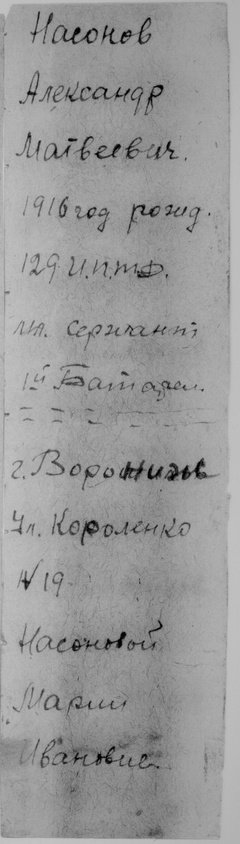 Насонов
Александр
Матвеевич.
1916 год рожд.
129 И.П.Т.Д.
мл. сержант
1й Батареи.
г. Воронеж
Ул. Короленко
№ 19
Насоновой
Марии
Ивановне.